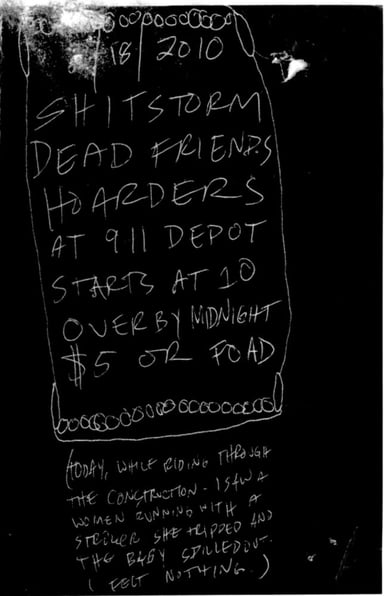 /18/2010
SHITSTORM
DEAD FRIENDS
HOARDERS
AT 911 DEPOT
STARTS AT 10
OVER BY MIDNIGHT
$5 OR FOAD
(TODAY, WHILE RIDING THROUGH
THE CONSTRUCTION. I SAW A
WOMEN RUNNING WITH A
STROLLER SHE TRIPPED AND
THE BABY SPILLED OUT.
I FELT NOTHING.)